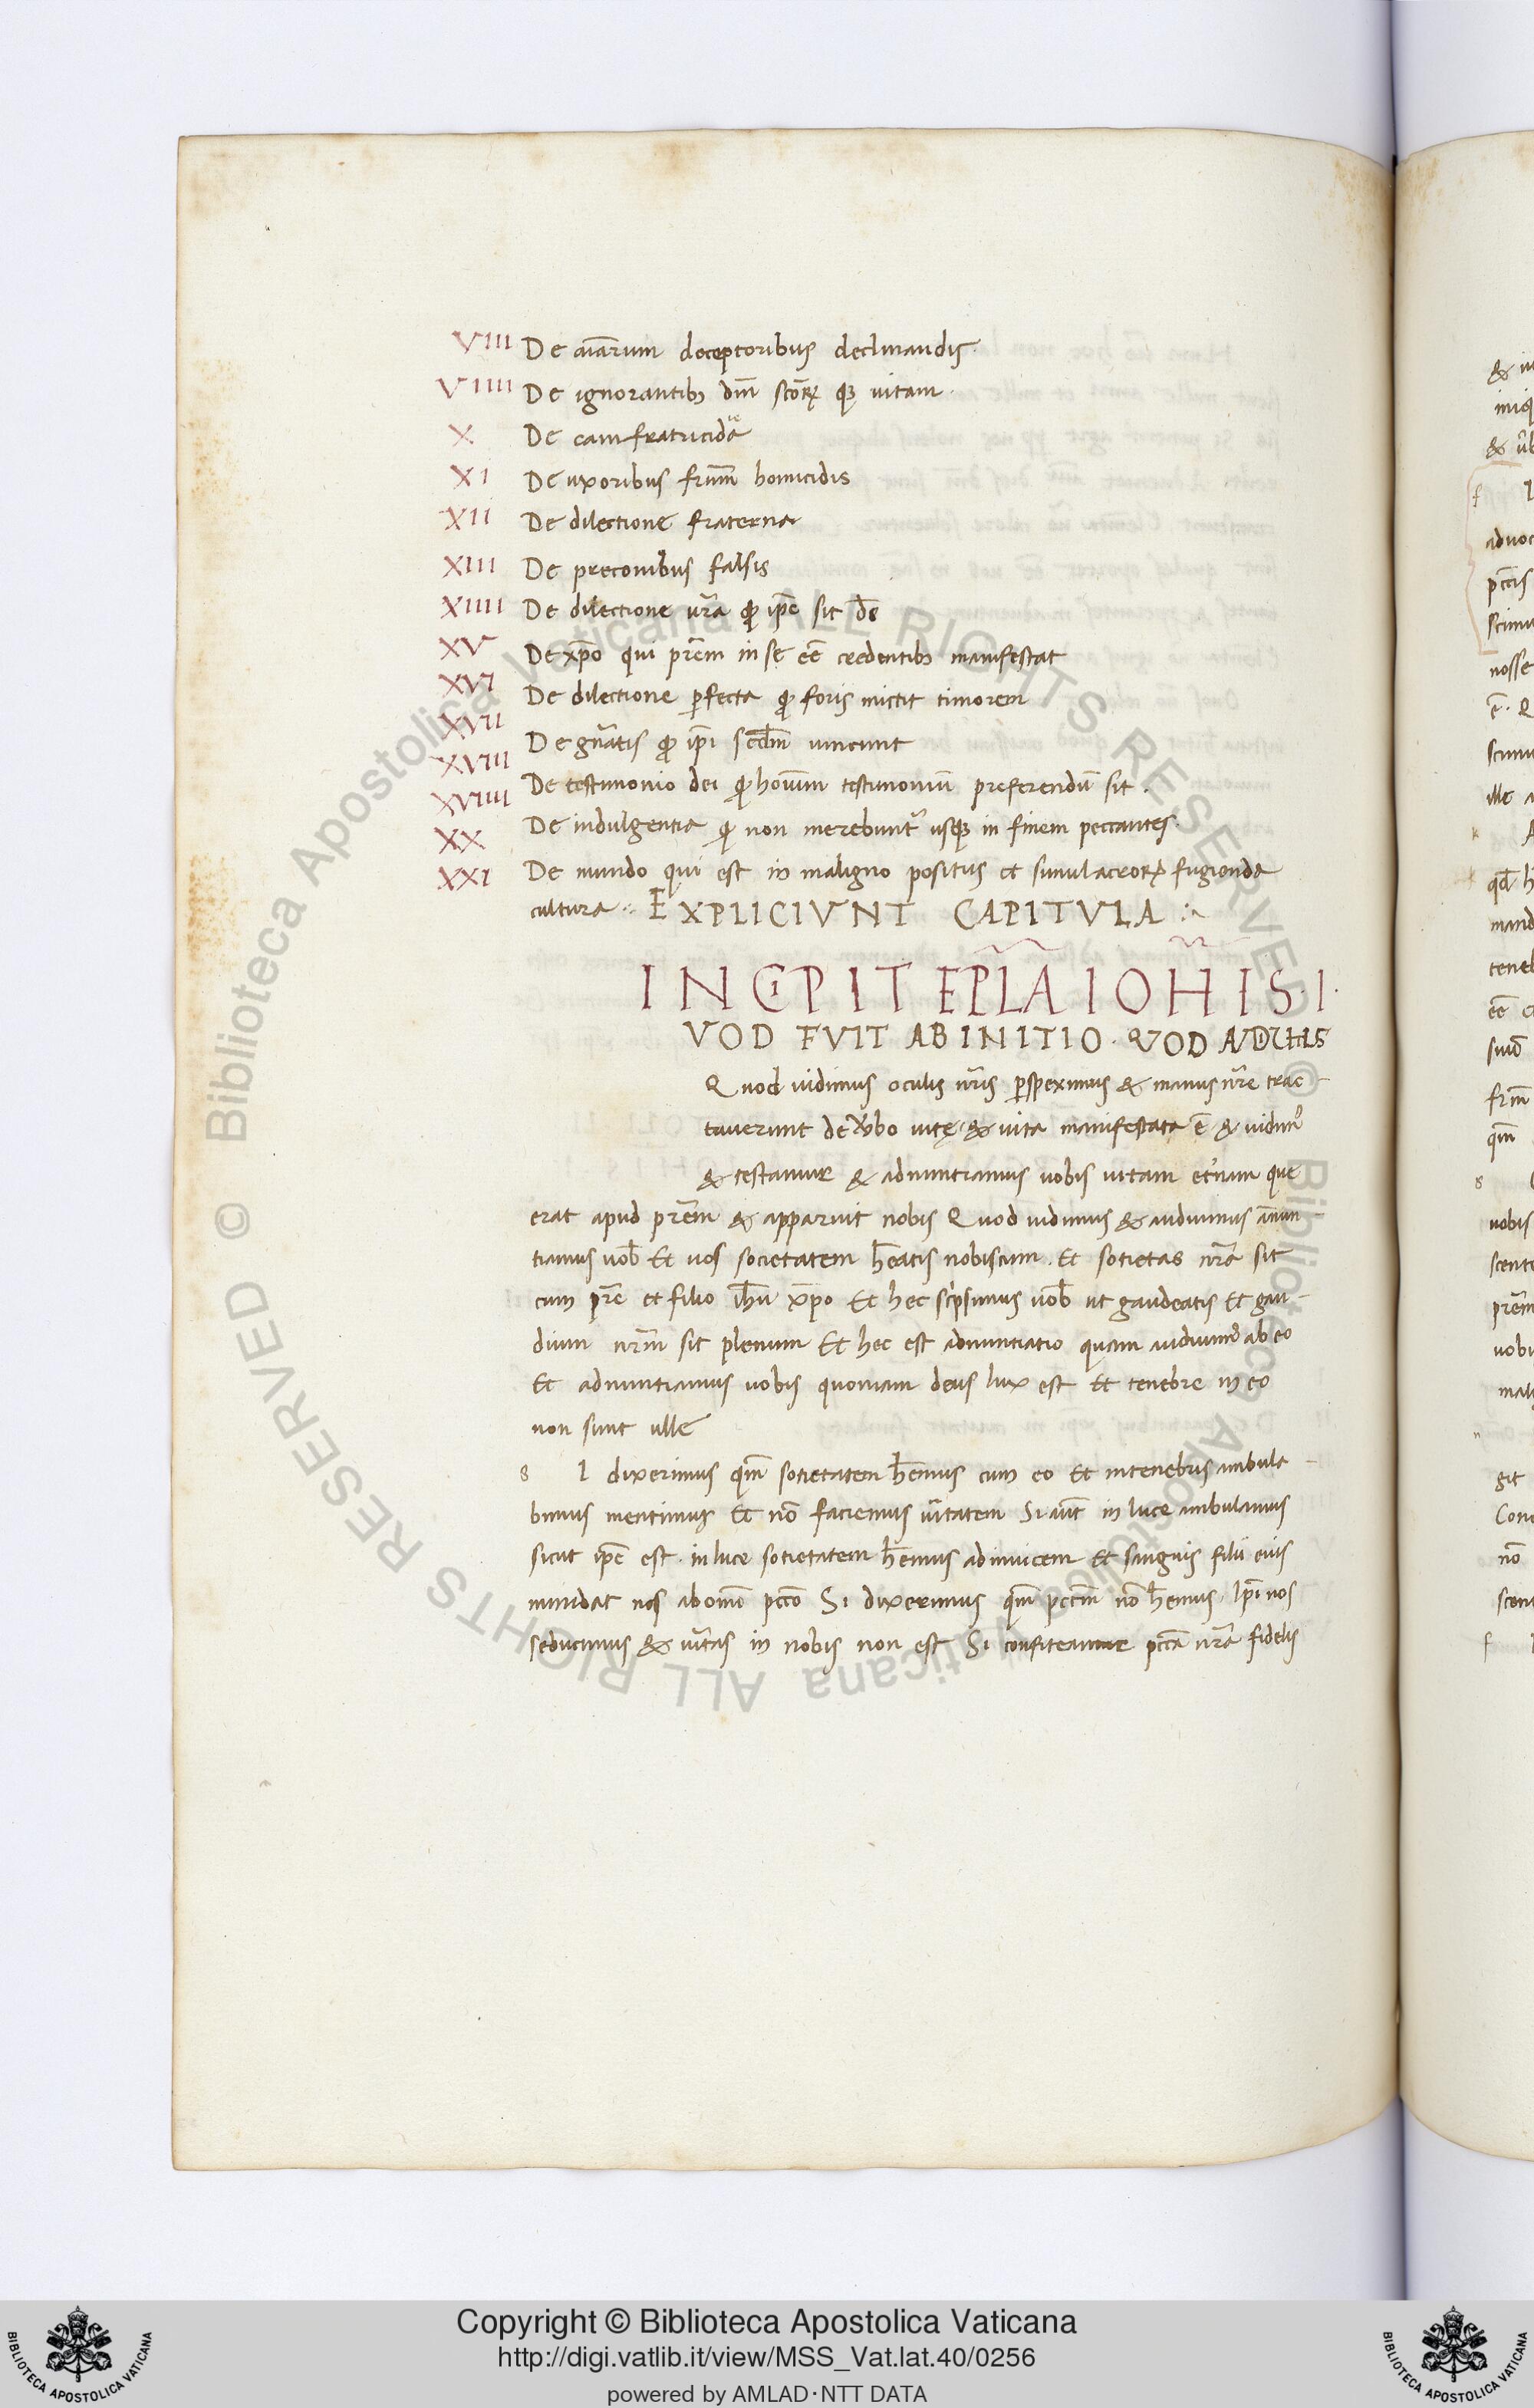 VIII De aīarum deceptoribus declinandis.
VIIII De ignorantib; dm̄ sctōꝝ q; uitam.
X De cain fratricida
XI De uxoribus frūm homicidis
XII De dilectione fraterna
XIII De preconibus falsis
XIIII De dilectione ur̄a ꝙ ip̄e sit d̄s
XV De xp̄o qui pr̄em in se eē credentib; manifestat
XVI De dilectione ꝑfecta ꝙ foris mictit timorem
XVII De gn̄atis ꝙ ip̄i sclm̄ uincunt
XVIII De testimonio dei ꝙ hoīum testimoniū preferendū sit.
XVIIII De indulgentia ꝙ non merebuntr̄ usq; in finem peccantes.
XX De mundo qui est in maligno positus et simulacroꝝ fugienda
XXI
cultura. EXPLICIVNT CAPITVLA
INCIPIT EPLA IOHIS. I.
VOD FVIT AB INITIO. QVOD AVDIVIMS
Quod uidimus oculis nr̄is ꝑspeximus & manus nr̄e trac-
tauerunt de ūbo uitę & uita manifestata ē & uidim᷒
& testamur & adnuntiamus uobis uitam et̄nam que
erat apud pr̄em & apparuit nobis Quod uidimus & audiuimus annun-
tiamus uob̄ Et uos societatem h̄eatis nobiscum. Et sotietas nr̄a sit
cum pr̄e et filio ih̄u xp̄o Et hec scpsimus uob̄ ut gaudeatis Et gau-
dium nr̄m sit plenum Et hec est adnuntiatio quam audiuim᷒ ab eo
Et adnuntiamus uobis quoniam deus lux est Et tenebre in eo
non sunt ulle
s I dixerimus qm̄ sotietatem h̄emus cum eo Et in tenebris ambula-
bimus mentimur Et nō faciemus ūitatem Si aūt in luce ambulamus
sicut ip̄e est. in luce sotietatem h̄emus adinuicem Et sanguis filii eius
mundat nos ab omī pccō Si dixerimus qm̄ pcctm̄ nō h̄emus. Ip̄i nos
seducimus & ūitas in nobis non est Si confiteamur pccā nr̄a fidelis
Copyright © Biblioteca Apostolica Vaticana
http://digi.vatlib.it/view/MSS_Vat.lat.40/0256
powered by AMLAD·NTT DATA